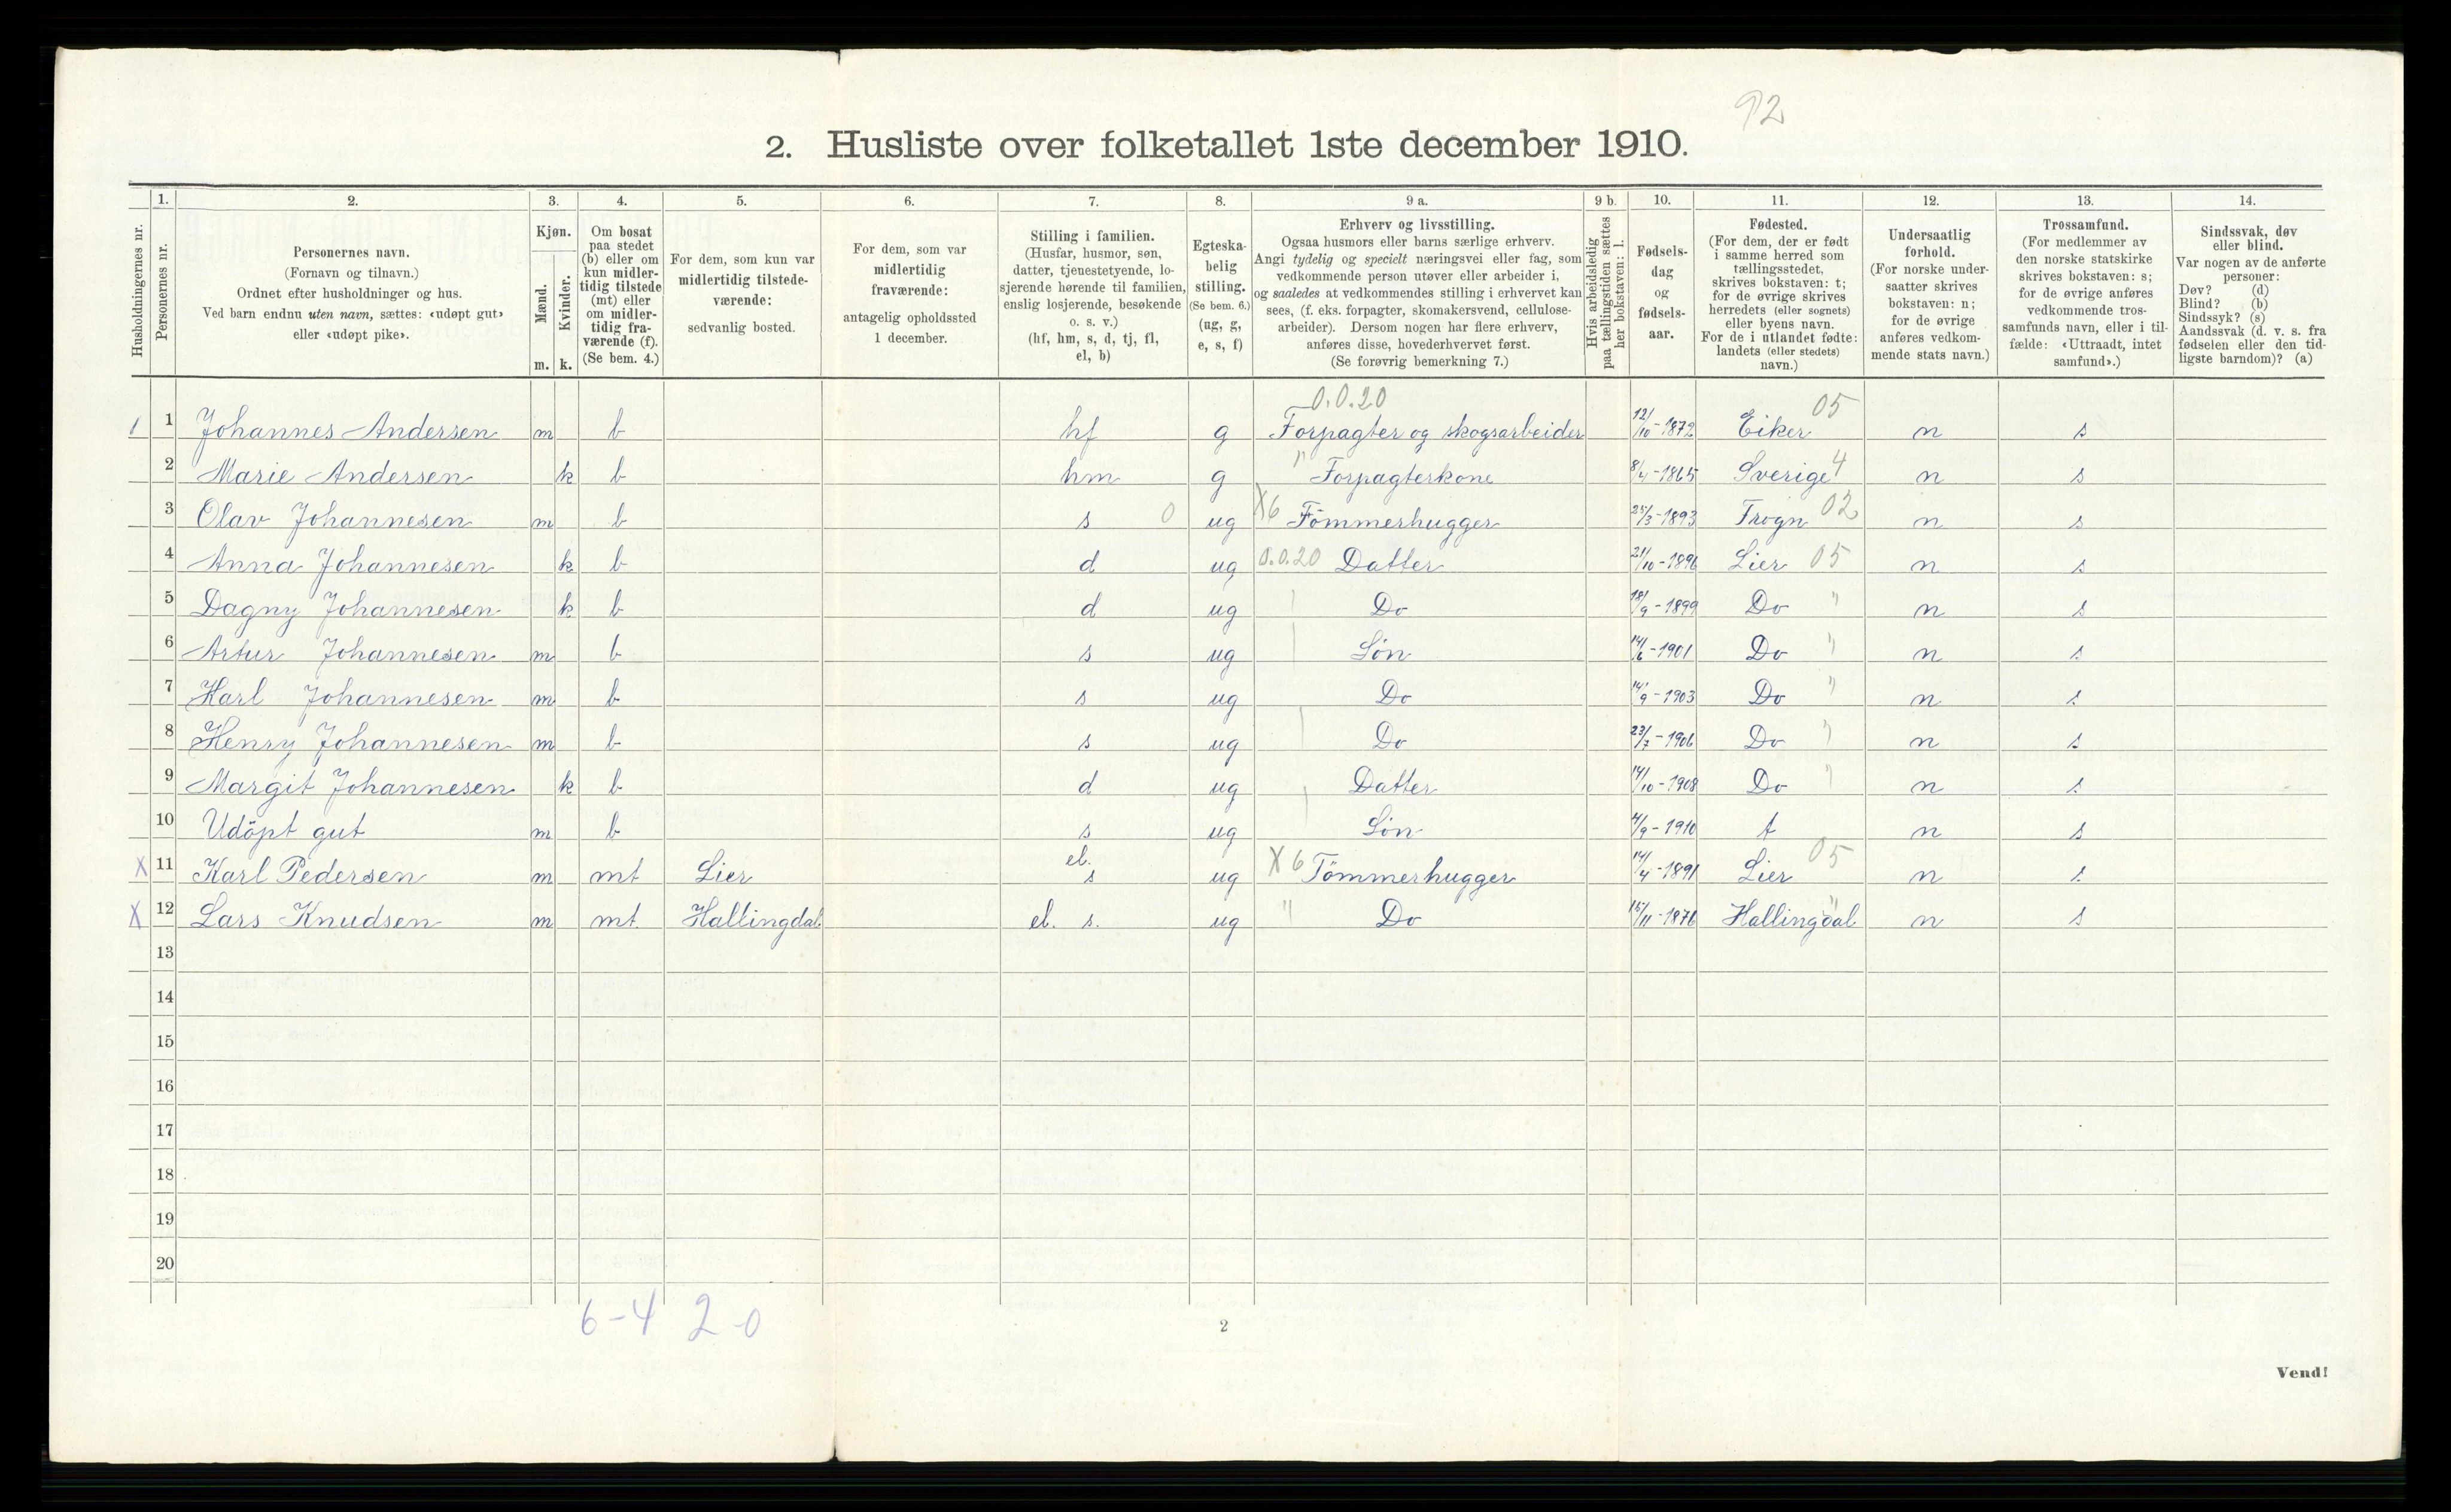 92
2. Husliste over folketallet 1ste december 1910.
Husholdningernes nr.
1. Personernes nr.
2. Personernes navn. (Fornavn og tilnavn.) Ordnet efter husholdninger og hus. Ved barn endnu uten navn, sættes: «udøpt gut» eller «udøpt pike».
3. Kjøn. Mænd. m. Kvinder. k.
4. Om bosat paa stedet (b) eller om kun midlertidig tilstede (mt) eller om midlertidig fraværende (f). (Se bem. 4.)
5. For dem, som kun var midlertidig tilstedeværende: sedvanlig bosted.
6. For dem, som var midlertidig fraværende: antagelig opholdssted 1 december.
7. Stilling i familien. (Husfar, husmor, søn, datter, tjenestetyende, losjerende hørende til familien, enslig losjerende, besøkende o. s. v.) (hf, hm, s, d, tj, fl, el, b)
8. Egteskabelig stilling. (Se bem. 6.) (ug, g, e, s, f)
9 a. Erhverv og livsstilling. Ogsaa husmors eller barns særlige erhverv. Angi tydelig og specielt næringsvei eller fag, som vedkommende person utøver eller arbeider i, og saaledes at vedkommendes stilling i erhvervet kan sees, (f. eks. forpagter, skomakersvend, cellulosearbeider). Dersom nogen har flere erhverv, anføres disse, hovederhvervet først. (Se forøvrig bemerkning 7.)
9 b. Hvis arbeidsledig paa tællingstiden sættes her bokstaven: l.
10. Fødselsdag og fødselsaar.
11. Fødested. (For dem, der er født i samme herred som tællingsstedet, skrives bokstaven: t; for de øvrige skrives herredets (eller sognets) eller byens navn. For de i utlandet fødte: landets (eller stedets) navn.)
12. Undersaatlig forhold. (For norske undersaatter skrives bokstaven: n; for de øvrige anføres vedkommende stats navn.)
13. Trossamfund. (For medlemmer av den norske statskirke skrives bokstaven: s; for de øvrige anføres vedkommende trossamfunds navn, eller i tilfælde: «Uttraadt, intet samfund».)
14. Sindssvak, døv eller blind. Var nogen av de anførte personer: Døv? (d) Blind? (b) Sindssyk? (s) Aandssvak (d. v. s. fra fødselen eller den tidligste barndom)? (a)
0.0.20
1 1 Johannes Andersen m b hf g Forpagter og skogsarbeider 12/10-1872 Eiker 05 n s
2 Marie Andersen k b hm g " Forpagterkone 8/4-1865 Sverige 4 n s
3 Olav Johannesen m b s 0 ug X6 Tömmerhugger 25/3-1893 Frogn 02 n s
4 Anna Johannesen k b d ug 0.0.20 Datter 21/10-1896 Lier 05 n s
5 Dagny Johannesen k b d ug Do 18/9-1899 Do " n s
6 Artur Johannesen m b s ug Sön 14/6-1901 Do " n s
7 Karl Johannesen m b s ug Do 14/9-1903 Do " n s
8 Henry Johannesen m b s ug Do 23/7-1906 Do " n s
9 Margit Johannesen k b d ug Datter 14/10-1908 Do " n s
10 Udöpt gut m b s ug Sön 4/9-1910 t n s
X 11 Karl Pedersen m mt Lier el. s ug X6 Tömmerhugger 14/4-1891 Lier 05 n s
X 12 Lars Knudsen m mt Hallingdal el. s. ug " Do 15/11-1876 Hallingdal " n s
13
14
15
16
17
18
19
20
6-4 2-0
2
Vend!